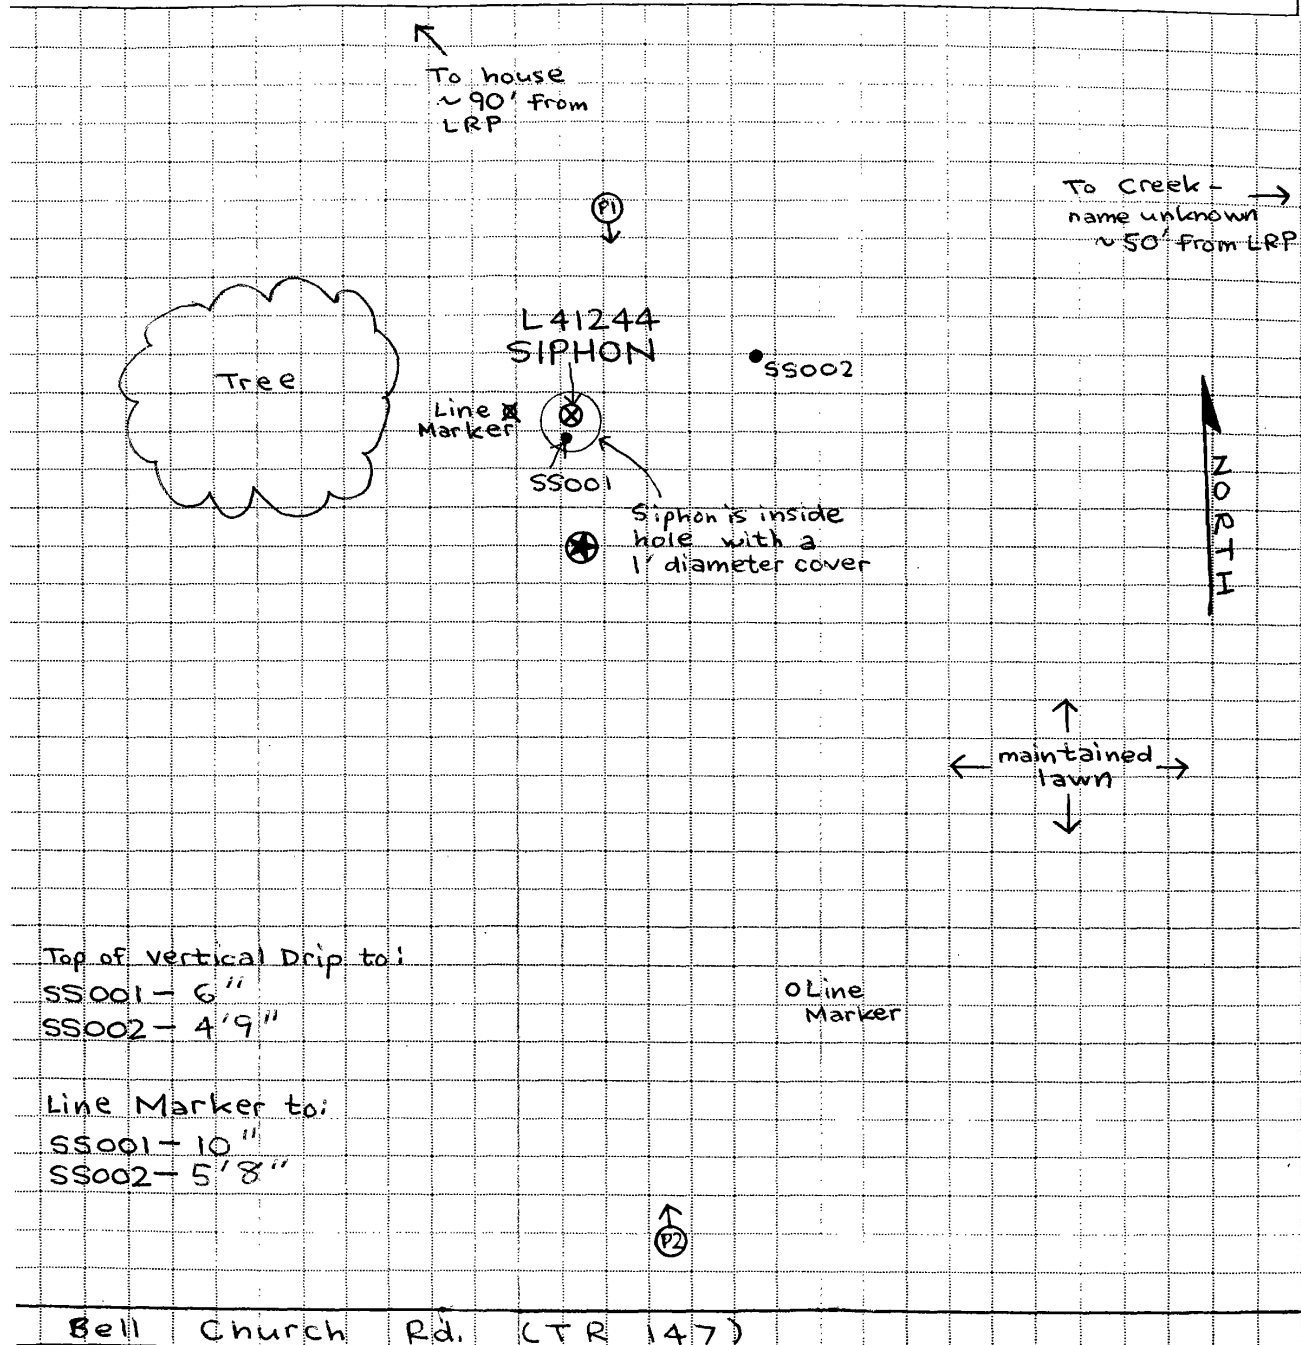 To house
~ 90' from
LRP
To Creek -
name unknown
~ 50' from LRP
P1
L41244
SIPHON
SS002
Tree
Line
Marker
SS001
Siphon is inside
hole with a
1' diameter cover
NORTH
maintained
lawn
Top of Vertical Drip to:
SS001 - 6"
SS002 - 4'9"
Line
Marker
Line Marker to:
SS001 - 10"
SS002 - 5'8"
P2
Bell Church Rd. (TR 147)